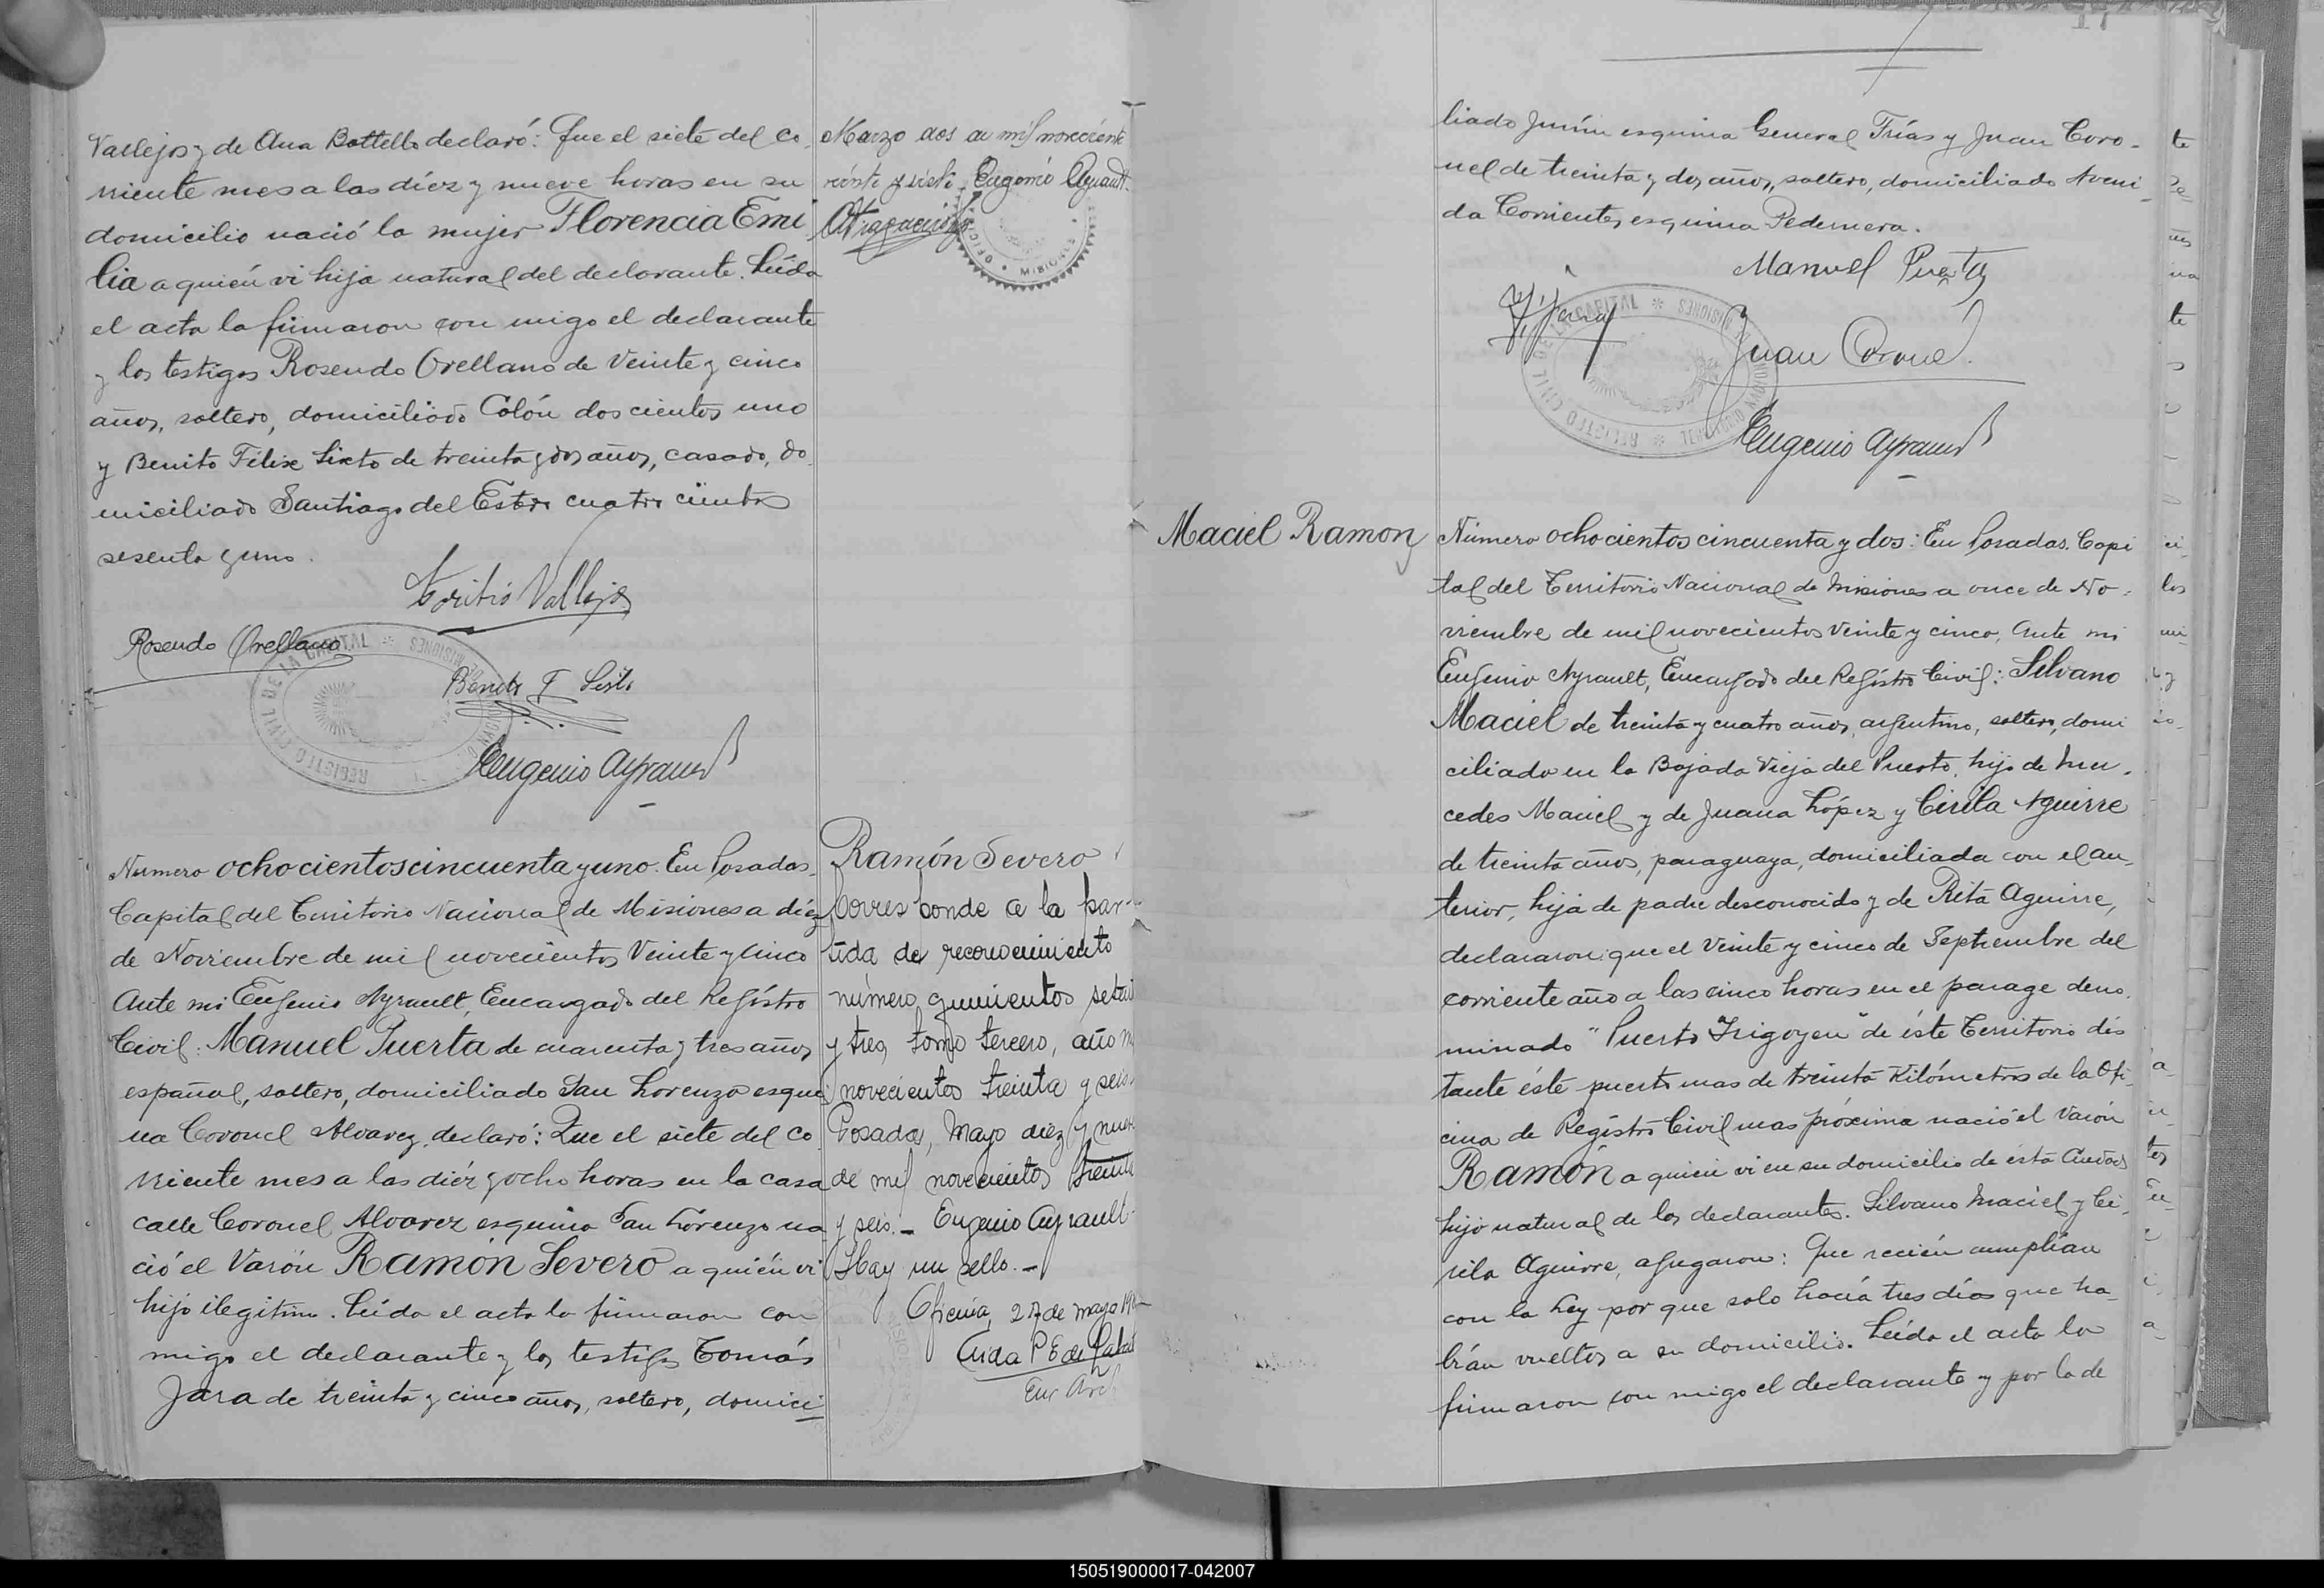 Vallejos y de Ana Bottello declaró: Que el siete del co
rriente mes a las diez y nueve horas en su
domicilio nació la mujer Florencia Emi
lia a quién vi hija natural del declarante. Leída
el acta la firmaron con migo el declarante
y los testigos Rosendo Orellano de Veinte y cinco
años, soltero, domiciliado Colón dos cientos uno
y Benito Félix Sixto de treinta y dos años, casado, do
miciliado Santiago del Estero cuatro cientos
sesenta y uno.
Toribio Vallejos
Rosendo Orellano
REGISTRO CIVIL DE LA CAPITAL * MISIONES
Benito F. Sisto
Eugenio Ayrault
Marzo dos de mil novecientos
veinte y siete. Eugenio Ayrault
OFIC MISIONES
Número ochocientos cincuenta y uno. En Posadas,
Capital del Territorio Nacional de Misiones a diez
de Noviembre de mil novecientos Veinte y cinco
Ante mi Eugenio Ayrault, Encargado del Registro
Civil: Manuel Puerta de cuarenta y tres años
español, soltero, domiciliado San Lorenzo esqui
na Coronel Alvarez, declaró: Que el siete del co
rriente mes a las diéz y ocho horas en la casa
calle Coronel Alvarez esquina San Lorenzo na
ció el Varón Ramón Severo a quién vi
hijo ilegitimo. Leída el acta la firmaron con
migo el declarante y los testigos Tomás
Jara de treinta y cinco años, soltero, domici
Ramón Severo
Corresponde a la par-
tida de reconocimiento
número quinientos setent
y tres, tomo tercero, año m
novecientos treinta y seis.
Posadas, Mayo diez y nueve
de mil novecientos treinta
y seis.- Eugenio Ayrault-
Hay un sello.-
Oficina, 27 de mayo 19
Aida P E de
Enc Arch
17
liado Junín esquina General Frías y Juan Coro-
nel de treinta y dos años, soltero, domiciliado Aveni
da Corrientes esquina Pedernera.
Manuel Puerta
T. Jara
REGISTRO CIVIL DE LA CAPITAL * MISIONES
Juan Coronel
Eugenio Ayrault
Maciel Ramon
Número ocho cientos cincuenta y dos: En Posadas, Capi
tal del Territorio Nacional de Misiones a once de No-
viembre de mil novecientos Veinte y cinco, Ante mi
Eugenio Ayrault, Encargado del Registro Civil: Silvano
Maciel de treinta y cuatro años, argentino, soltero, domi
ciliado en la Bajada Vieja del Puerto, hijo de Mer-
cedes Maciel y de Juana López y Cirila Aguirre
de treinta años, paraguaya, domiciliada con el an-
terior, hija de padre desconocido y de Rita Aguirre,
declararon: que el Veinte y cinco de Septiembre del
corriente año a las cinco horas en el parage deno-
minado "Puerto Irigoyen" de éste Territorio dis
tante éste puerto mas de treinta Kilómetros de la Ofi-
cina de Registro Civil mas próxima nació el Varón
Ramón a quien vi en su domicilio de ésta Ciudad
hijo natural de los declarantes. Silvano Maciel y Ci-
rila Aguirre, agregaron: Que recién cumplían
con la Ley por que solo hacía tres días que ha-
bían vueltos a su domicilio. Leída el acta la
firmaron con migo el declarante y por la de